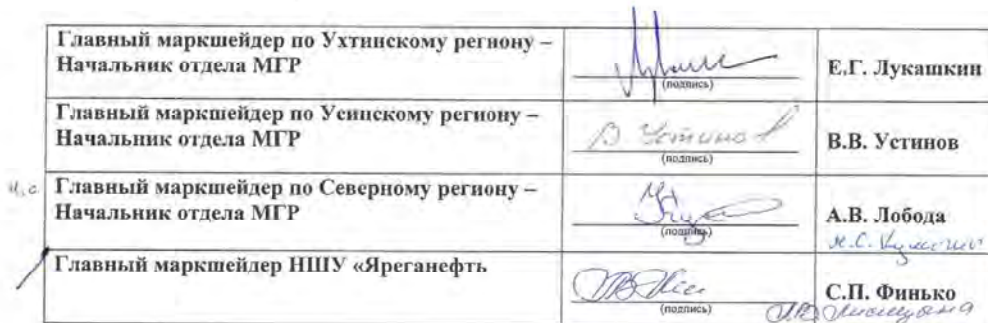 Главный маркшейдер по Ухтинскому региону –
Начальник отдела МГР
(подпись)
Е.Г. Лукашкин
Главный маркшейдер по Усинскому региону –
Начальник отдела МГР
В. Устинов
(подпись)
В.В. Устинов
Главный маркшейдер по Северному региону –
Начальник отдела МГР
(подпись)
А.В. Лобода
Главный маркшейдер НШУ «Яреганефть
(подпись)
С.П. Финько